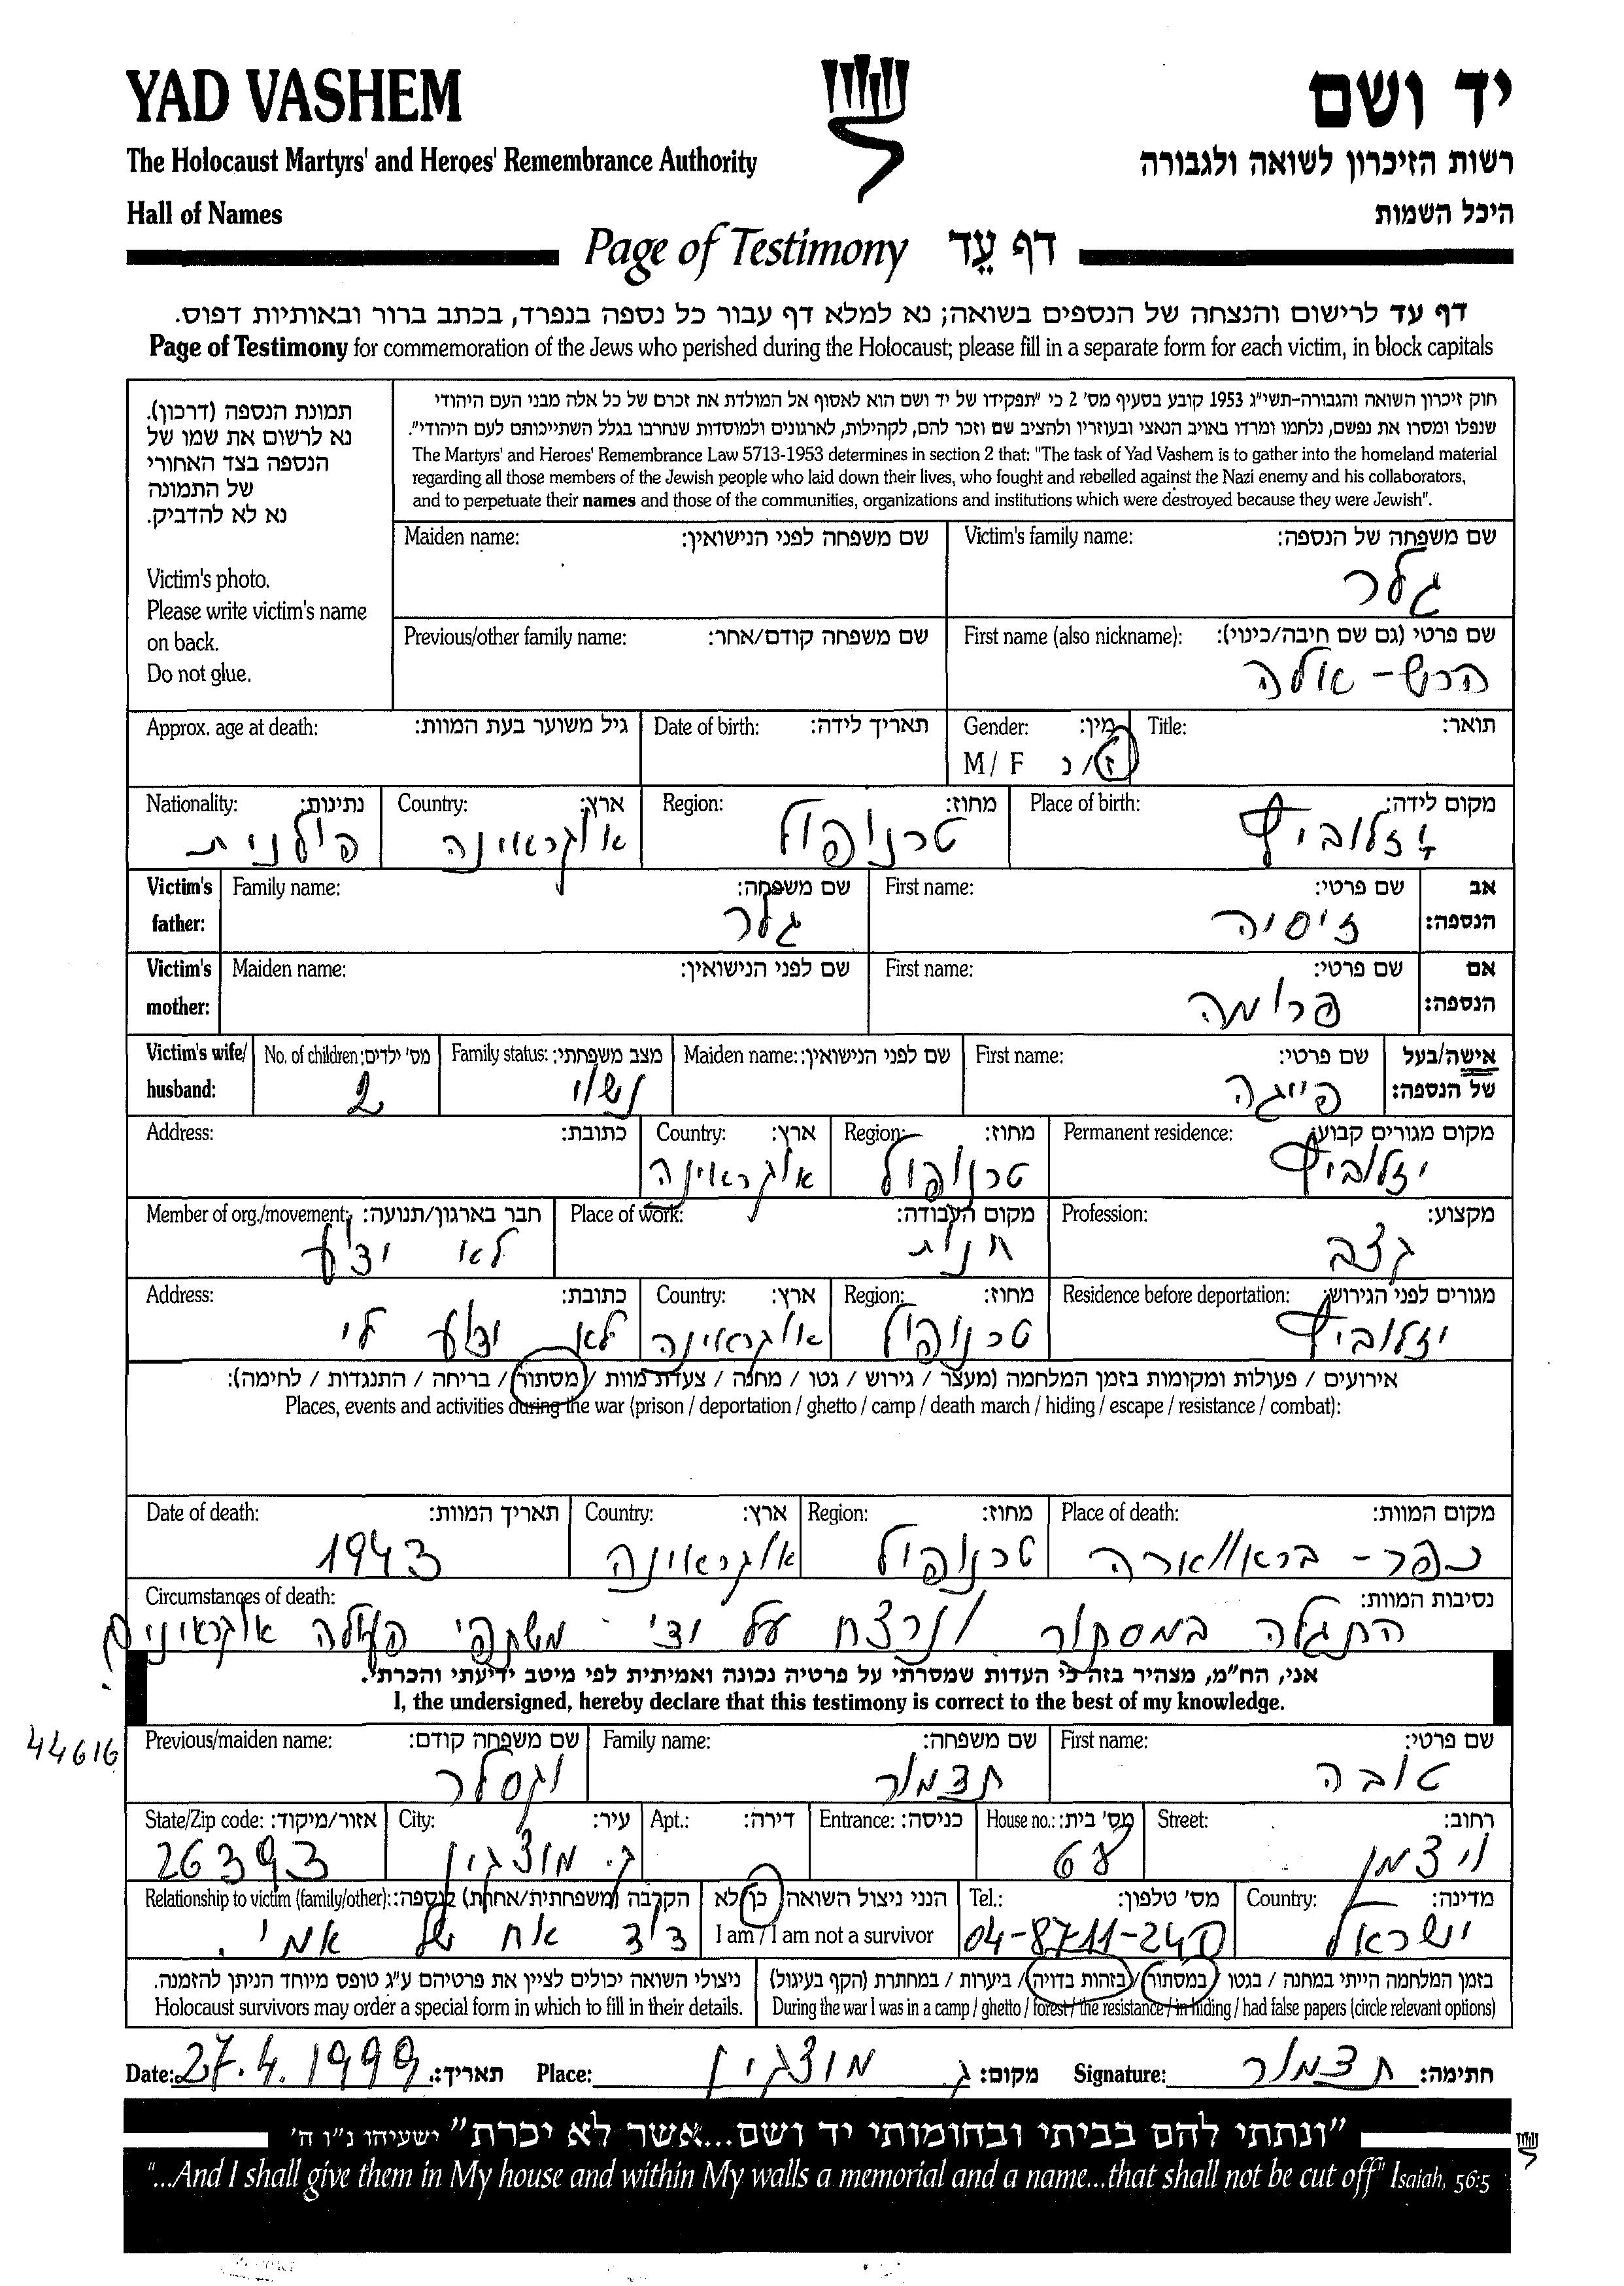 YAD VASHEM
יד ושם
The Holocaust Martyrs' and Heroes' Remembrance Authority
רשות הזיכרון לשואה ולגבורה
Hall of Names
היכל השמות
Page of Testimony דף עֵד
דף עד לרישום והנצחה של הנספים בשואה; נא למלא דף עבור כל נספה בנפרד, בכתב ברור ובאותיות דפוס.
Page of Testimony for commemoration of the Jews who perished during the Holocaust; please fill in a separate form for each victim, in block capitals
תמונת הנספה (דרכון).
נא לרשום את שמו של
הנספה בצד האחורי
של התמונה
נא לא להדביק.
Victim's photo.
Please write victim's name
on back.
Do not glue.
חוק זיכרון השואה והגבורה-תשי"ג 1953 קובע בסעיף מס' 2 כי "תפקידו של יד ושם הוא לאסוף אל המולדת את זכרם של כל אלה מבני העם היהודי
שנפלו ומסרו את נפשם, נלחמו ומרדו באויב הנאצי ובעוזריו ולהציב שם וזכר להם, לקהילות, לארגונים ולמוסדות שנחרבו בגלל השתייכותם לעם היהודי".
The Martyrs' and Heroes' Remembrance Law 5713-1953 determines in section 2 that: "The task of Yad Vashem is to gather into the homeland material
regarding all those members of the Jewish people who laid down their lives, who fought and rebelled against the Nazi enemy and his collaborators,
and to perpetuate their names and those of the communities, organizations and institutions which were destroyed because they were Jewish".
Victim's family name: שם משפחה של הנספה:
גלר
Maiden name: שם משפחה לפני הנישואין:
First name (also nickname): שם פרטי (גם שם חיבה/כינוי):
הרש-אלה
Previous/other family name: שם משפחה קודם/אחר:
Title: תואר:
Gender: מין:
M / F ז/נ
Date of birth: תאריך לידה:
Approx. age at death: גיל משוער בעת המוות:
Place of birth: מקום לידה:
יזלוביץ
Region: מחוז:
טרנופול
Country: ארץ:
אוקראינה
Nationality: נתינות:
פולנית
Victim's father: אב הנספה:
First name: שם פרטי:
זיסיה
Family name: שם משפחה:
גלר
Victim's mother: אם הנספה:
First name: שם פרטי:
פרומה
Maiden name: שם לפני הנישואין:
Victim's wife/ husband: אישה/בעל של הנספה:
First name: שם פרטי:
פייגה
Maiden name: שם לפני הנישואין:
Family status: מצב משפחתי:
נשוי
No. of children: מס' ילדים:
2
Permanent residence: מקום מגורים קבוע:
יזלוביץ
Region: מחוז:
טרנופול
Country: ארץ:
אוקראינה
Address: כתובת:
Profession: מקצוע:
קצב
Place of work: מקום העבודה:
חנות
Member of org./movement: חבר בארגון/תנועה:
לא ידוע
Residence before deportation: מגורים לפני הגירוש:
יזלוביץ
Region: מחוז:
טרנופול
Country: ארץ:
אוקראינה
Address: כתובת:
לא ידוע לי
אירועים / פעולות ומקומות בזמן המלחמה (מעצר / גירוש / גטו / מחנה / צעדת מוות / מסתור / בריחה / התנגדות / לחימה):
Places, events and activities during the war (prison / deportation / ghetto / camp / death march / hiding / escape / resistance / combat):
Place of death: מקום המוות:
כפר-
Region: מחוז:
טרנופול
Country: ארץ:
אוקראינה
Date of death: תאריך המוות:
1943
Circumstances of death: נסיבות המוות:
התגלה במסתור ונרצח על ידי משתפי פעולה אוקראינים
אני, הח"מ, מצהיר בזה כי העדות שמסרתי על פרטיה נכונה ואמיתית לפי מיטב ידיעתי והכרתי.
I, the undersigned, hereby declare that this testimony is correct to the best of my knowledge.
44616
First name: שם פרטי:
טובה
Family name: שם משפחה:
תצמור
Previous/maiden name: שם משפחה קודם:
וקסלר
Street: רחוב:
ויצמן
House no.: מס' בית:
68
Entrance: כניסה:
Apt.: דירה:
City: עיר:
ק. מוצקין
State/Zip code: אזור/מיקוד:
26393
Country: מדינה:
ישראל
Tel.: מס' טלפון:
04-8711-240
הנני ניצול השואה כן/לא
I am / I am not a survivor
Relationship to victim (family/other): הקרבה (משפחתית/אחרת) לנספה:
דוד אח של אמי.
בזמן המלחמה הייתי במחנה / בגטו / במסתור / בזהות בדויה / ביערות / במחתרת (הקף בעיגול)
During the war I was in a camp / ghetto / forest / the resistance / in hiding / had false papers (circle relevant options)
ניצולי השואה יכולים לציין את פרטיהם ע"ג טופס מיוחד הניתן להזמנה.
Holocaust survivors may order a special form in which to fill in their details.
Date: 27.4.1999 תאריך:
Place: ק. מוצקין מקום:
Signature: תצמור חתימה:
"ונתתי להם בביתי ובחומותי יד ושם...אשר לא יכרת" ישעיהו נ"ו ה'
"...And I shall give them in My house and within My walls a memorial and a name...that shall not be cut off" Isaiah, 56:5